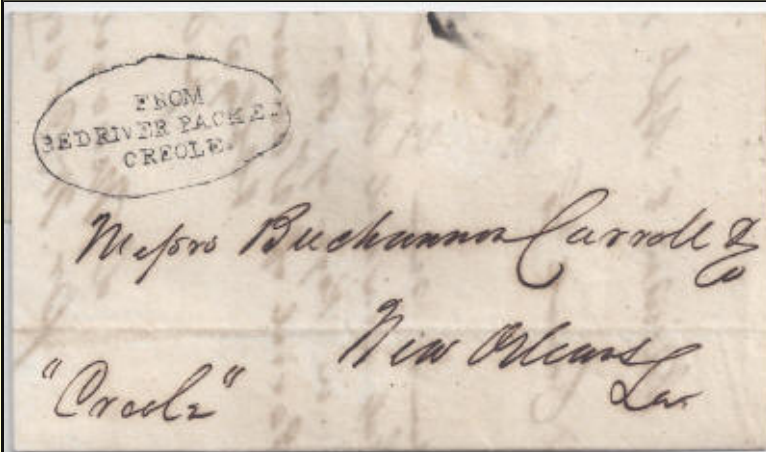 FROM
RED RIVER PACKET
CREOLE.
Messrs Buchannon Carroll & Co
New Orleans
La.
"Creole"